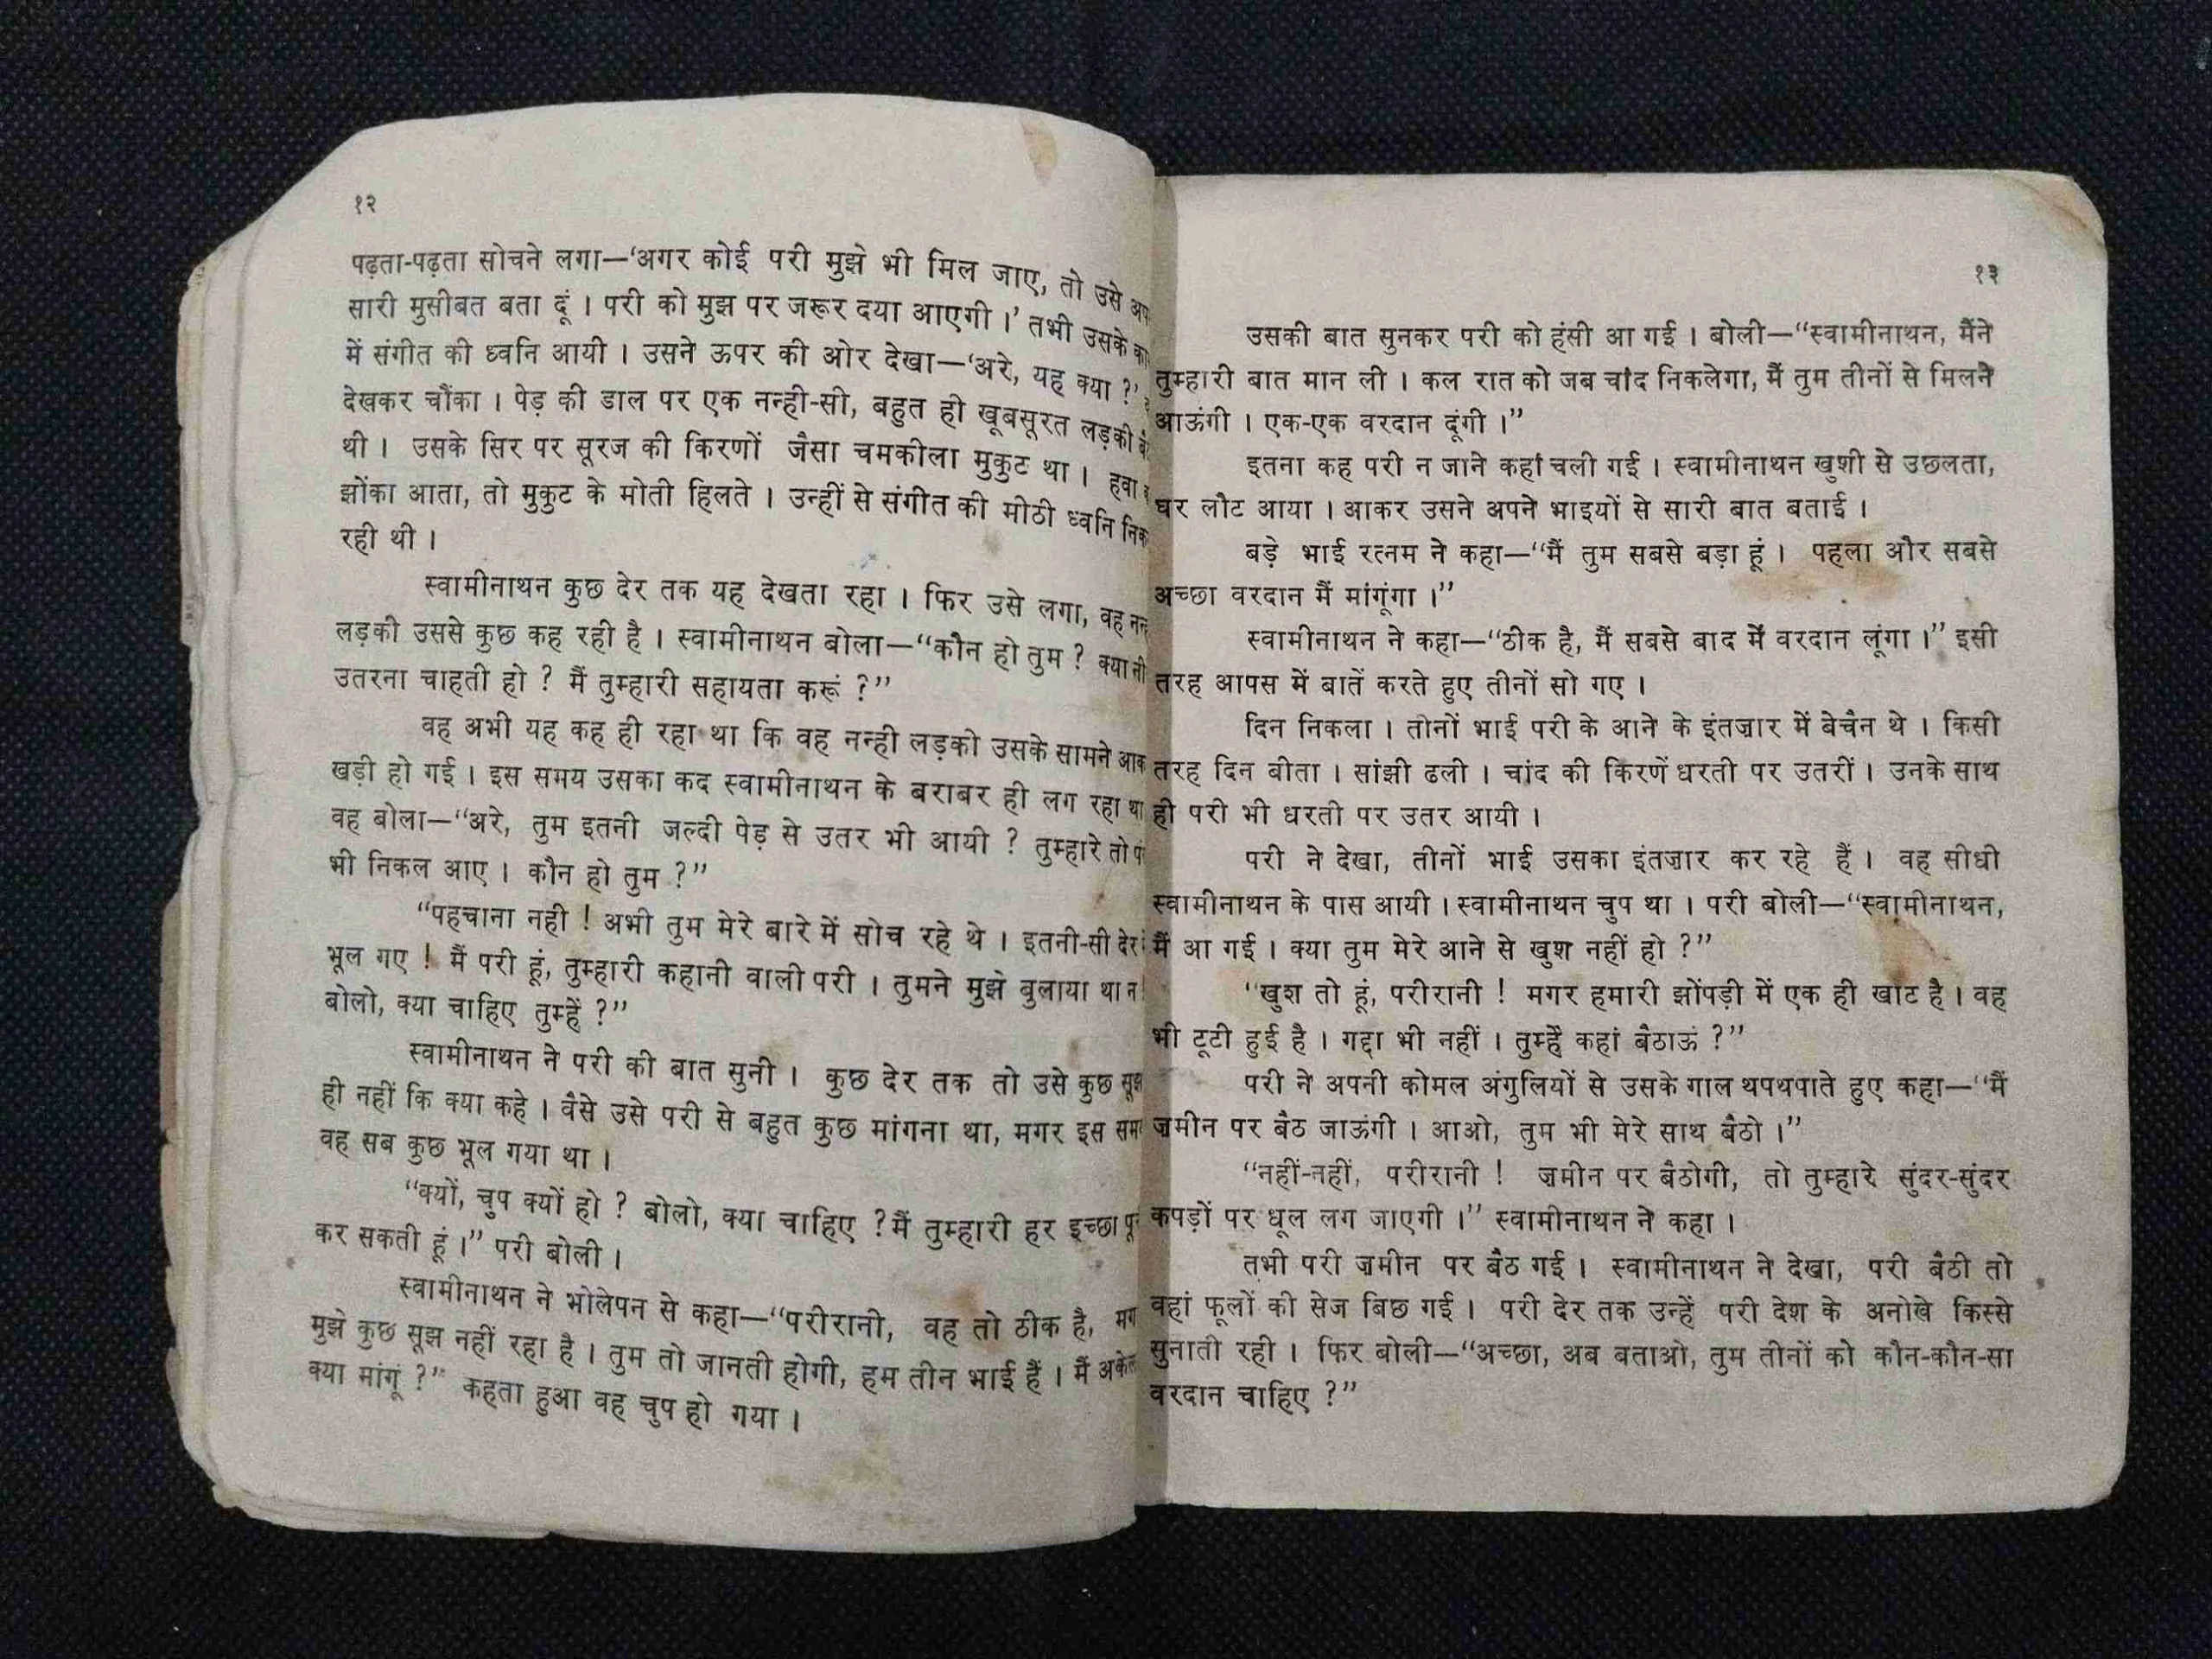 १२
पढ़ता-पढ़ता सोचने लगा—‘अगर कोई परी मुझे भी मिल जाए, तो उसे
सारी मुसीबत बता दूं । परी को मुझ पर जरूर दया आएगी ।’ तभी उसके
में संगीत की ध्वनि आयी । उसने ऊपर की ओर देखा—‘अरे, यह क्या ?’
देखकर चौंका । पेड़ की डाल पर एक नन्ही-सी, बहुत ही खूबसूरत लड़की
थी । उसके सिर पर सूरज की किरणों जैसा चमकीला मुकुट था । हवा
झोंका आता, तो मुकुट के मोती हिलते । उन्हीं से संगीत की मीठी ध्वनि
रही थी ।
स्वामीनाथन कुछ देर तक यह देखता रहा । फिर उसे लगा, वह
लड़की उससे कुछ कह रही है । स्वामीनाथन बोला—“कौन हो तुम ? क्या
उतरना चाहती हो ? मैं तुम्हारी सहायता करूं ?”
वह अभी यह कह ही रहा था कि वह नन्ही लड़की उसके सामने
खड़ी हो गई । इस समय उसका कद स्वामीनाथन के बराबर ही लग रहा था
वह बोला—“अरे, तुम इतनी जल्दी पेड़ से उतर भी आयी ? तुम्हारे तो
भी निकल आए । कौन हो तुम ?”
“पहचाना नही ! अभी तुम मेरे बारे में सोच रहे थे । इतनी-सी देर
भूल गए ! मैं परी हूं, तुम्हारी कहानी वाली परी । तुमने मुझे बुलाया था न
बोलो, क्या चाहिए तुम्हें ?”
स्वामीनाथन ने परी की बात सुनी । कुछ देर तक तो उसे कुछ
ही नहीं कि क्या कहे । वैसे उसे परी से बहुत कुछ मांगना था, मगर इस
वह सब कुछ भूल गया था ।
“क्यों, चुप क्यों हो ? बोलो, क्या चाहिए ? मैं तुम्हारी हर इच्छा
कर सकती हूं ।” परी बोली ।
स्वामीनाथन ने भोलेपन से कहा—“परीरानी, वह तो ठीक है,
मुझे कुछ सूझ नहीं रहा है । तुम तो जानती होगी, हम तीन भाई हैं । मैं
क्या मांगूं ?” कहता हुआ वह चुप हो गया ।
१३
उसकी बात सुनकर परी को हंसी आ गई । बोली—“स्वामीनाथन, मैंने
तुम्हारी बात मान ली । कल रात को जब चांद निकलेगा, मैं तुम तीनों से मिलने
आऊंगी । एक-एक वरदान दूंगी ।”
इतना कह परी न जाने कहां चली गई । स्वामीनाथन खुशी से उछलता,
घर लौट आया । आकर उसने अपने भाइयों से सारी बात बताई ।
बड़े भाई रत्नम ने कहा—“मैं तुम सबसे बड़ा हूं । पहला और सबसे
अच्छा वरदान मैं मांगूंगा ।”
स्वामीनाथन ने कहा—“ठीक है, मैं सबसे बाद में वरदान लूंगा ।” इसी
तरह आपस में बातें करते हुए तीनों सो गए ।
दिन निकला । तीनों भाई परी के आने के इंतज़ार में बेचैन थे । किसी
तरह दिन बीता । सांझी ढली । चांद की किरणें धरती पर उतरीं । उनके साथ
ही परी भी धरती पर उतर आयी ।
परी ने देखा, तीनों भाई उसका इंतज़ार कर रहे हैं । वह सीधी
स्वामीनाथन के पास आयी । स्वामीनाथन चुप था । परी बोली—“स्वामीनाथन,
मैं आ गई । क्या तुम मेरे आने से खुश नहीं हो ?”
“खुश तो हूं, परीरानी ! मगर हमारी झोंपड़ी में एक ही खाट है । वह
भी टूटी हुई है । गद्दा भी नहीं । तुम्हें कहां बैठाऊं ?”
परी ने अपनी कोमल अंगुलियों से उसके गाल थपथपाते हुए कहा—“मैं
ज़मीन पर बैठ जाऊंगी । आओ, तुम भी मेरे साथ बैठो ।”
“नहीं-नहीं, परीरानी ! ज़मीन पर बैठोगी, तो तुम्हारे सुंदर-सुंदर
कपड़ों पर धूल लग जाएगी ।” स्वामीनाथन ने कहा ।
तभी परी ज़मीन पर बैठ गई । स्वामीनाथन ने देखा, परी बैठी तो
वहां फूलों की सेज बिछ गई । परी देर तक उन्हें परी देश के अनोखे किस्से
सुनाती रही । फिर बोली—“अच्छा, अब बताओ, तुम तीनों को कौन-कौन-सा
वरदान चाहिए ?”